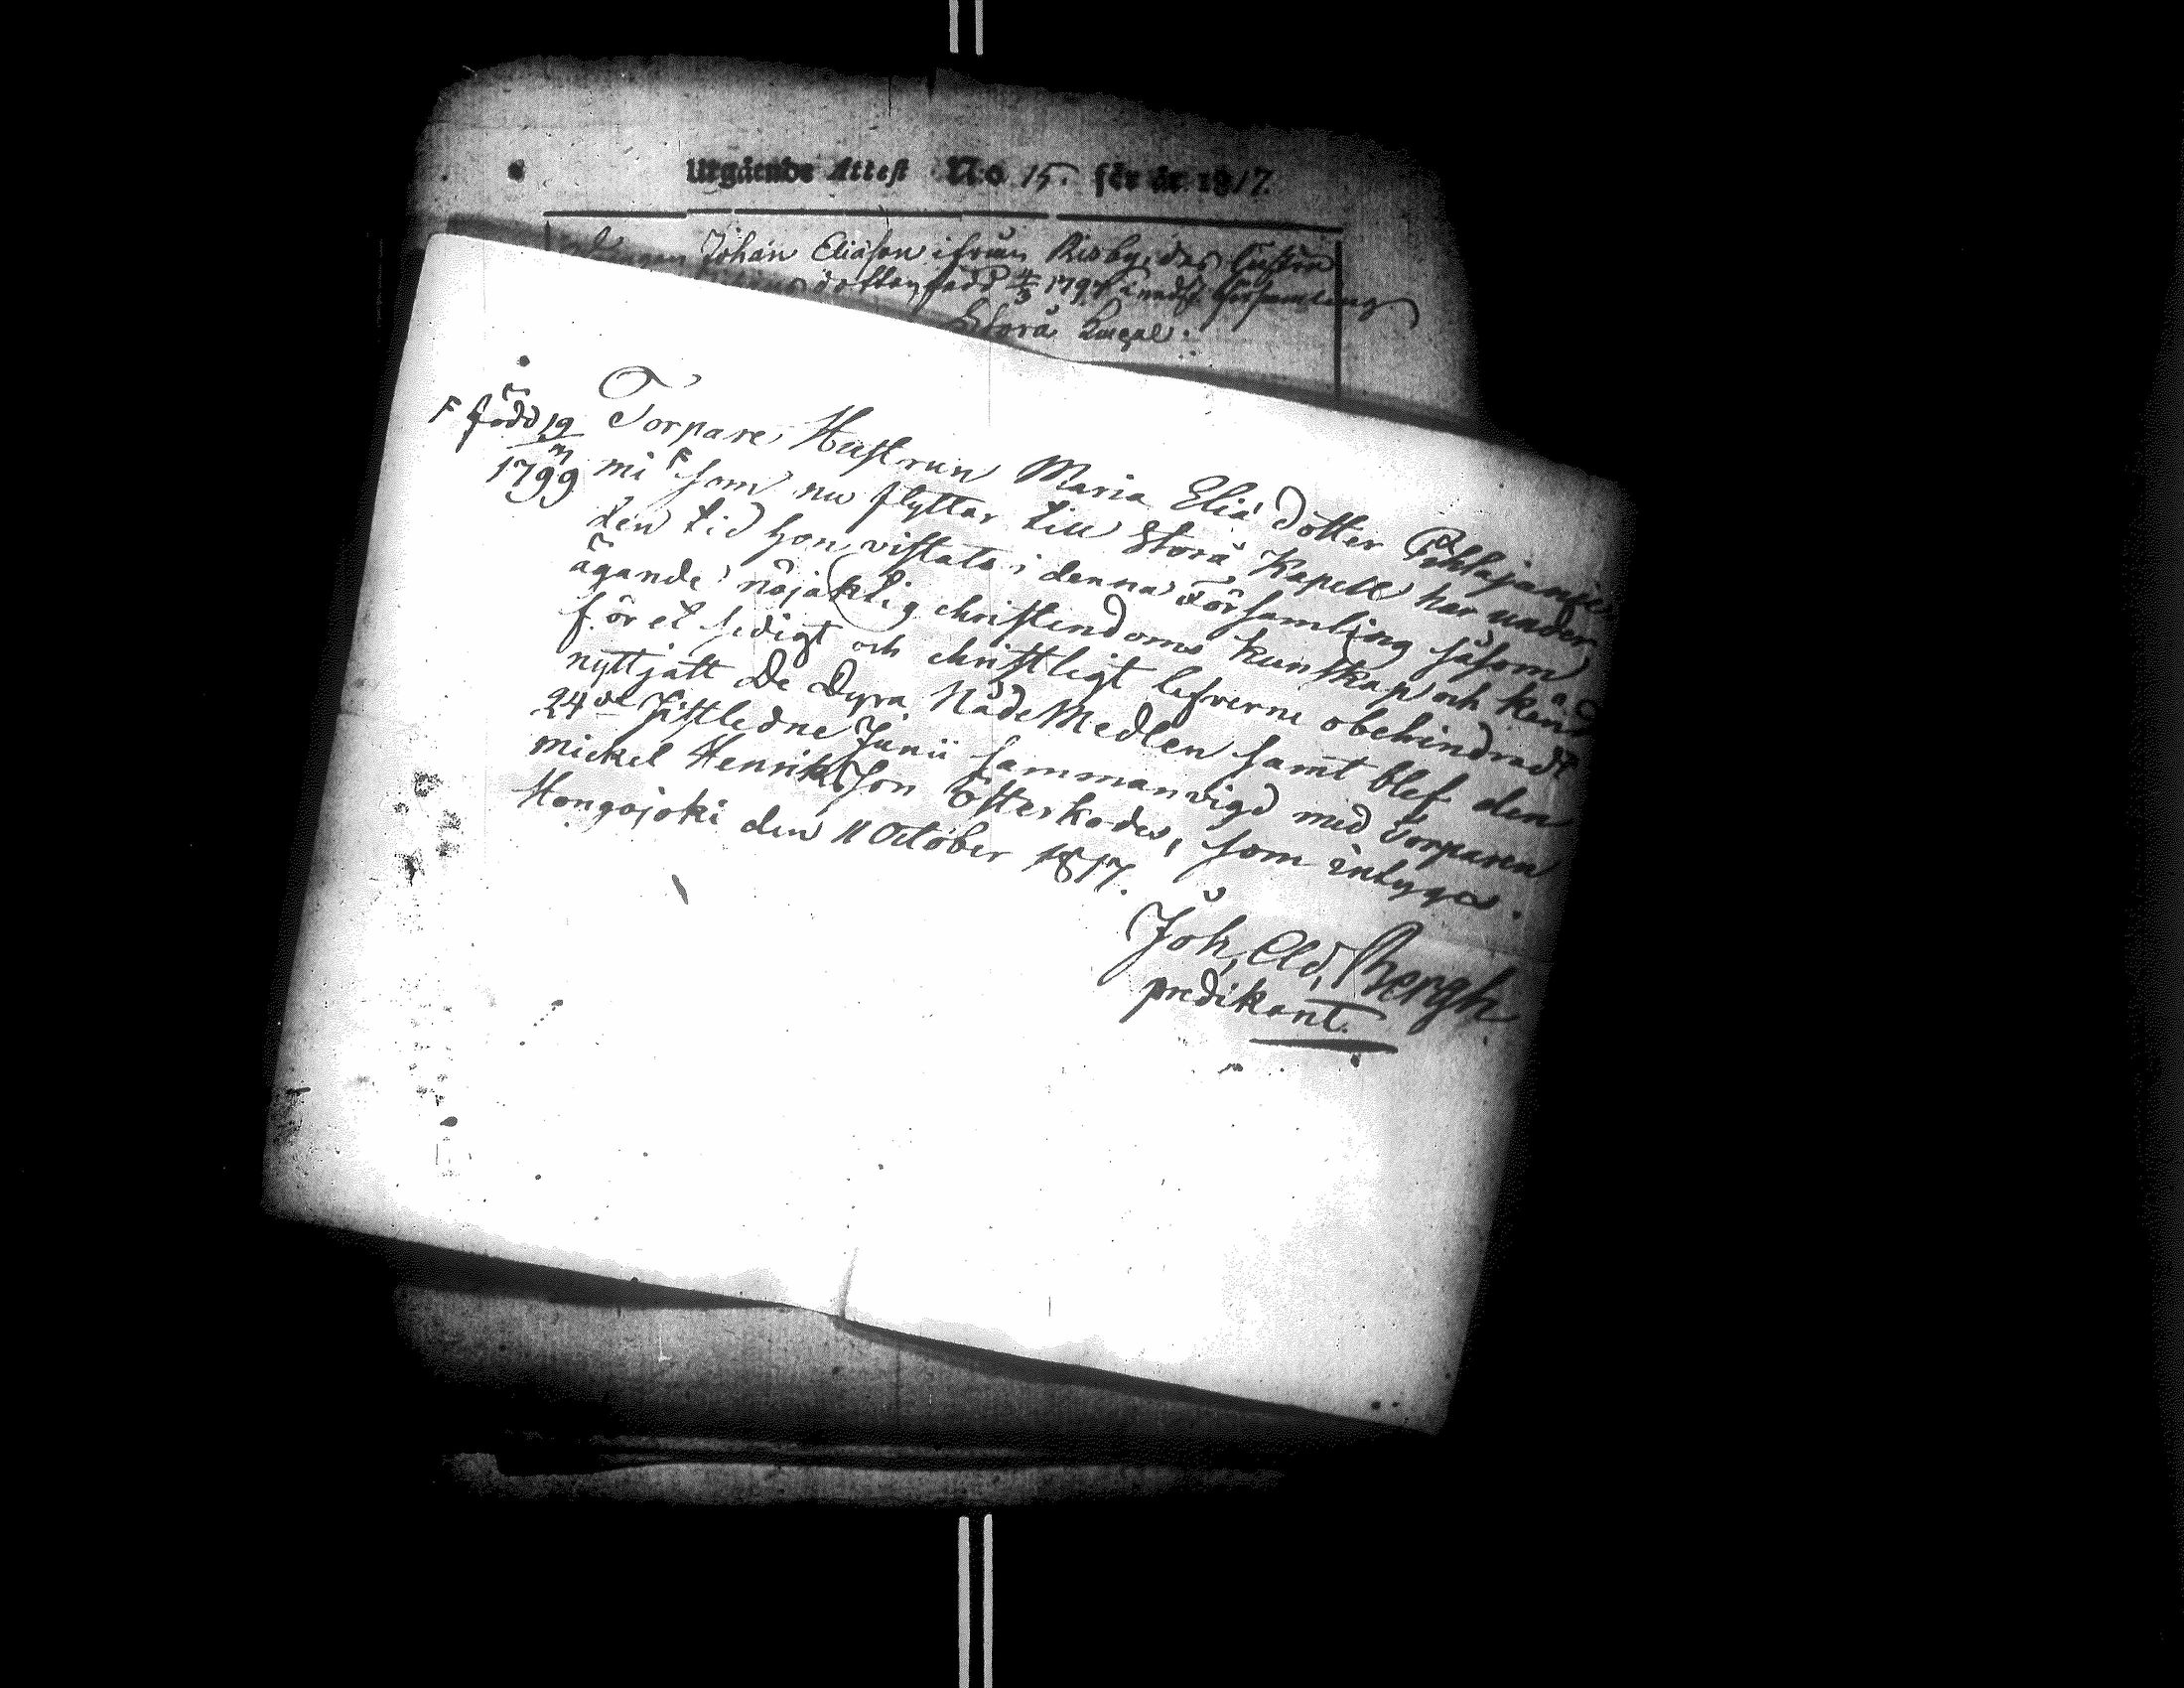 Utgående Attest No 15. för år 1817.
Johan Eliason ifrån Risby, des Hustru
dotter född 4/3 1797 Församling
Storå Kapel.
F född 19/m 1799
Torpare Hustrun Maria Elia dotter
mi F som nu flyttar till Storå Kapell har under
den tid hon vistats i denna Församling såsom
ägande nöjaktig christendoms kunskap och känd
för et sedigt och christligt lefverne obehindradt
nyttjatt De Dyra Nåde Medlen samt blef den
24de sistledne Junii sammanvigd med Torparen
Mickel Henriksson Österkodes, som intygas.
Hongojoki den 11 October 1817.
Joh, Ad, Bergh
predikant.